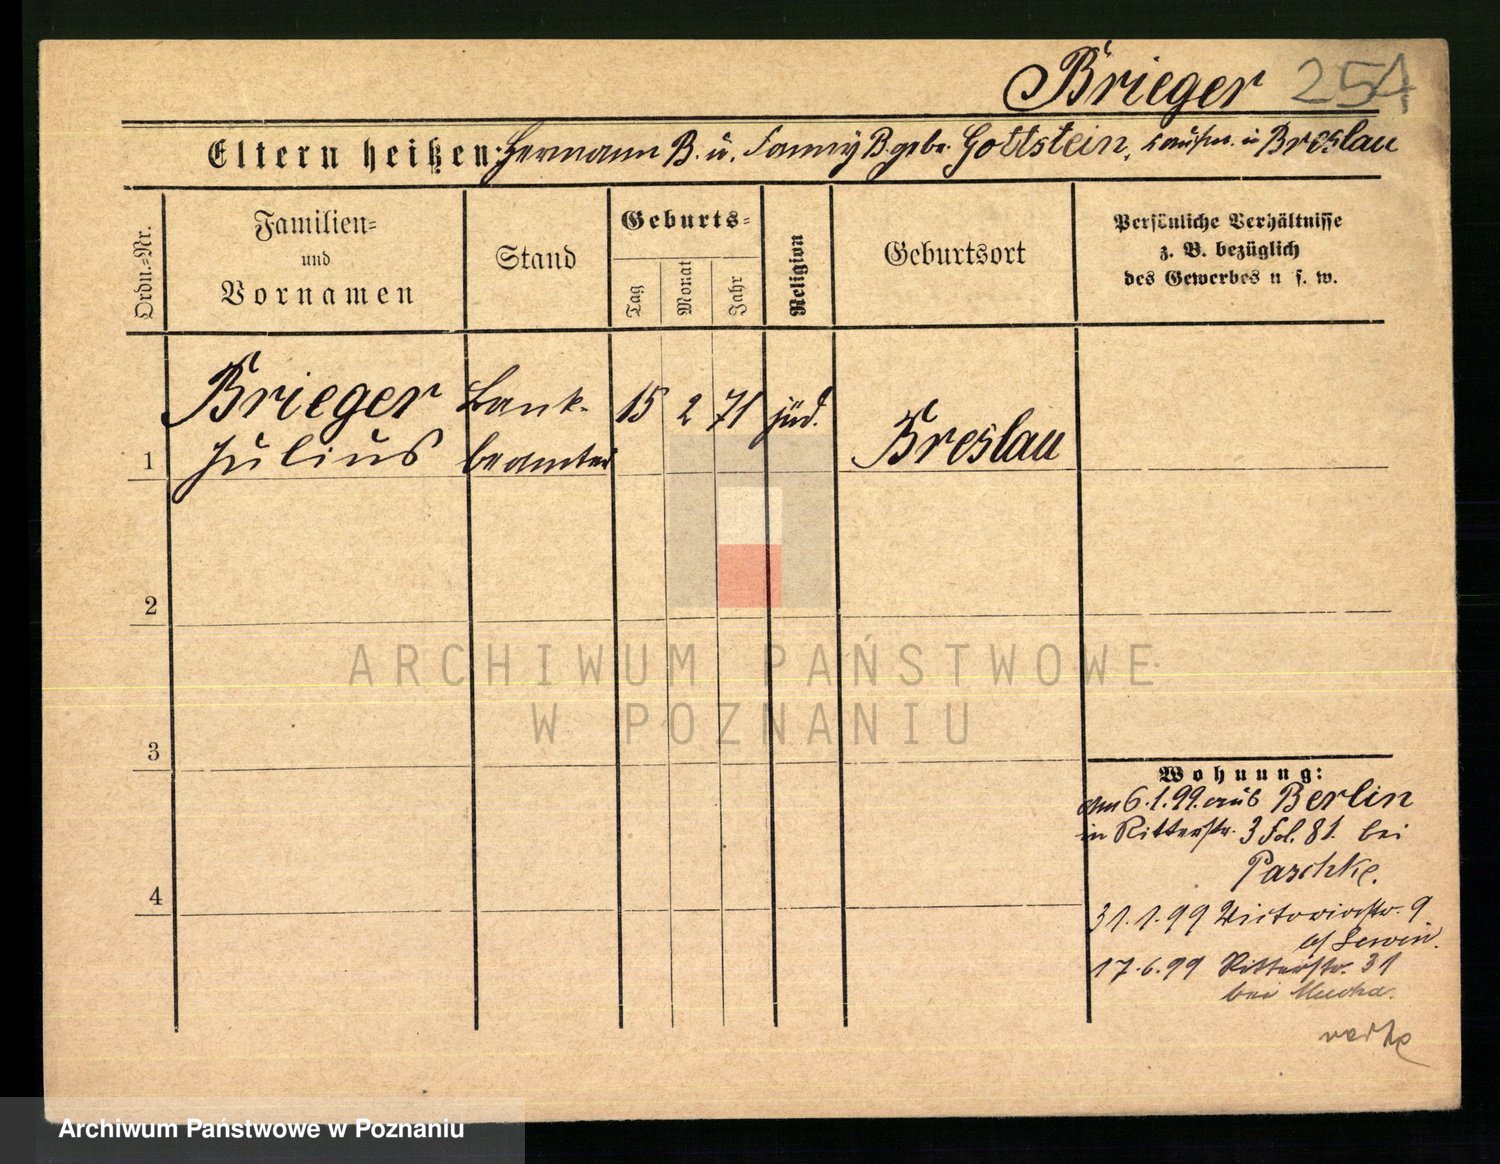 Brieger 254
Eltern heißen: Hermann B. u. Fanny B. gebr. Gottstein, in Breslau
Ordn.-Nr.
Familien-
und
Vornamen
Stand
Geburts-
Tag
Monat
Jahr
Religion
Geburtsort
Persönliche Verhältnisse
z. B. bezüglich
des Gewerbes u s. w.
1
Brieger
Julius
Bank-
beamter
15
2
71
jüd.
Breslau
2
3
4
ARCHIWUM PAŃSTWOWE
W POZNANIU
Wohnung:
am 6.1.99. aus Berlin
in Ritterstr. 3 Fol. 81. bei
Paschke.
31.1.99 Victoriastr. 9
b/ Lewin.
17.6.99 Ritterstr. 31
bei Mucha.
Archiwum Państwowe w Poznaniu